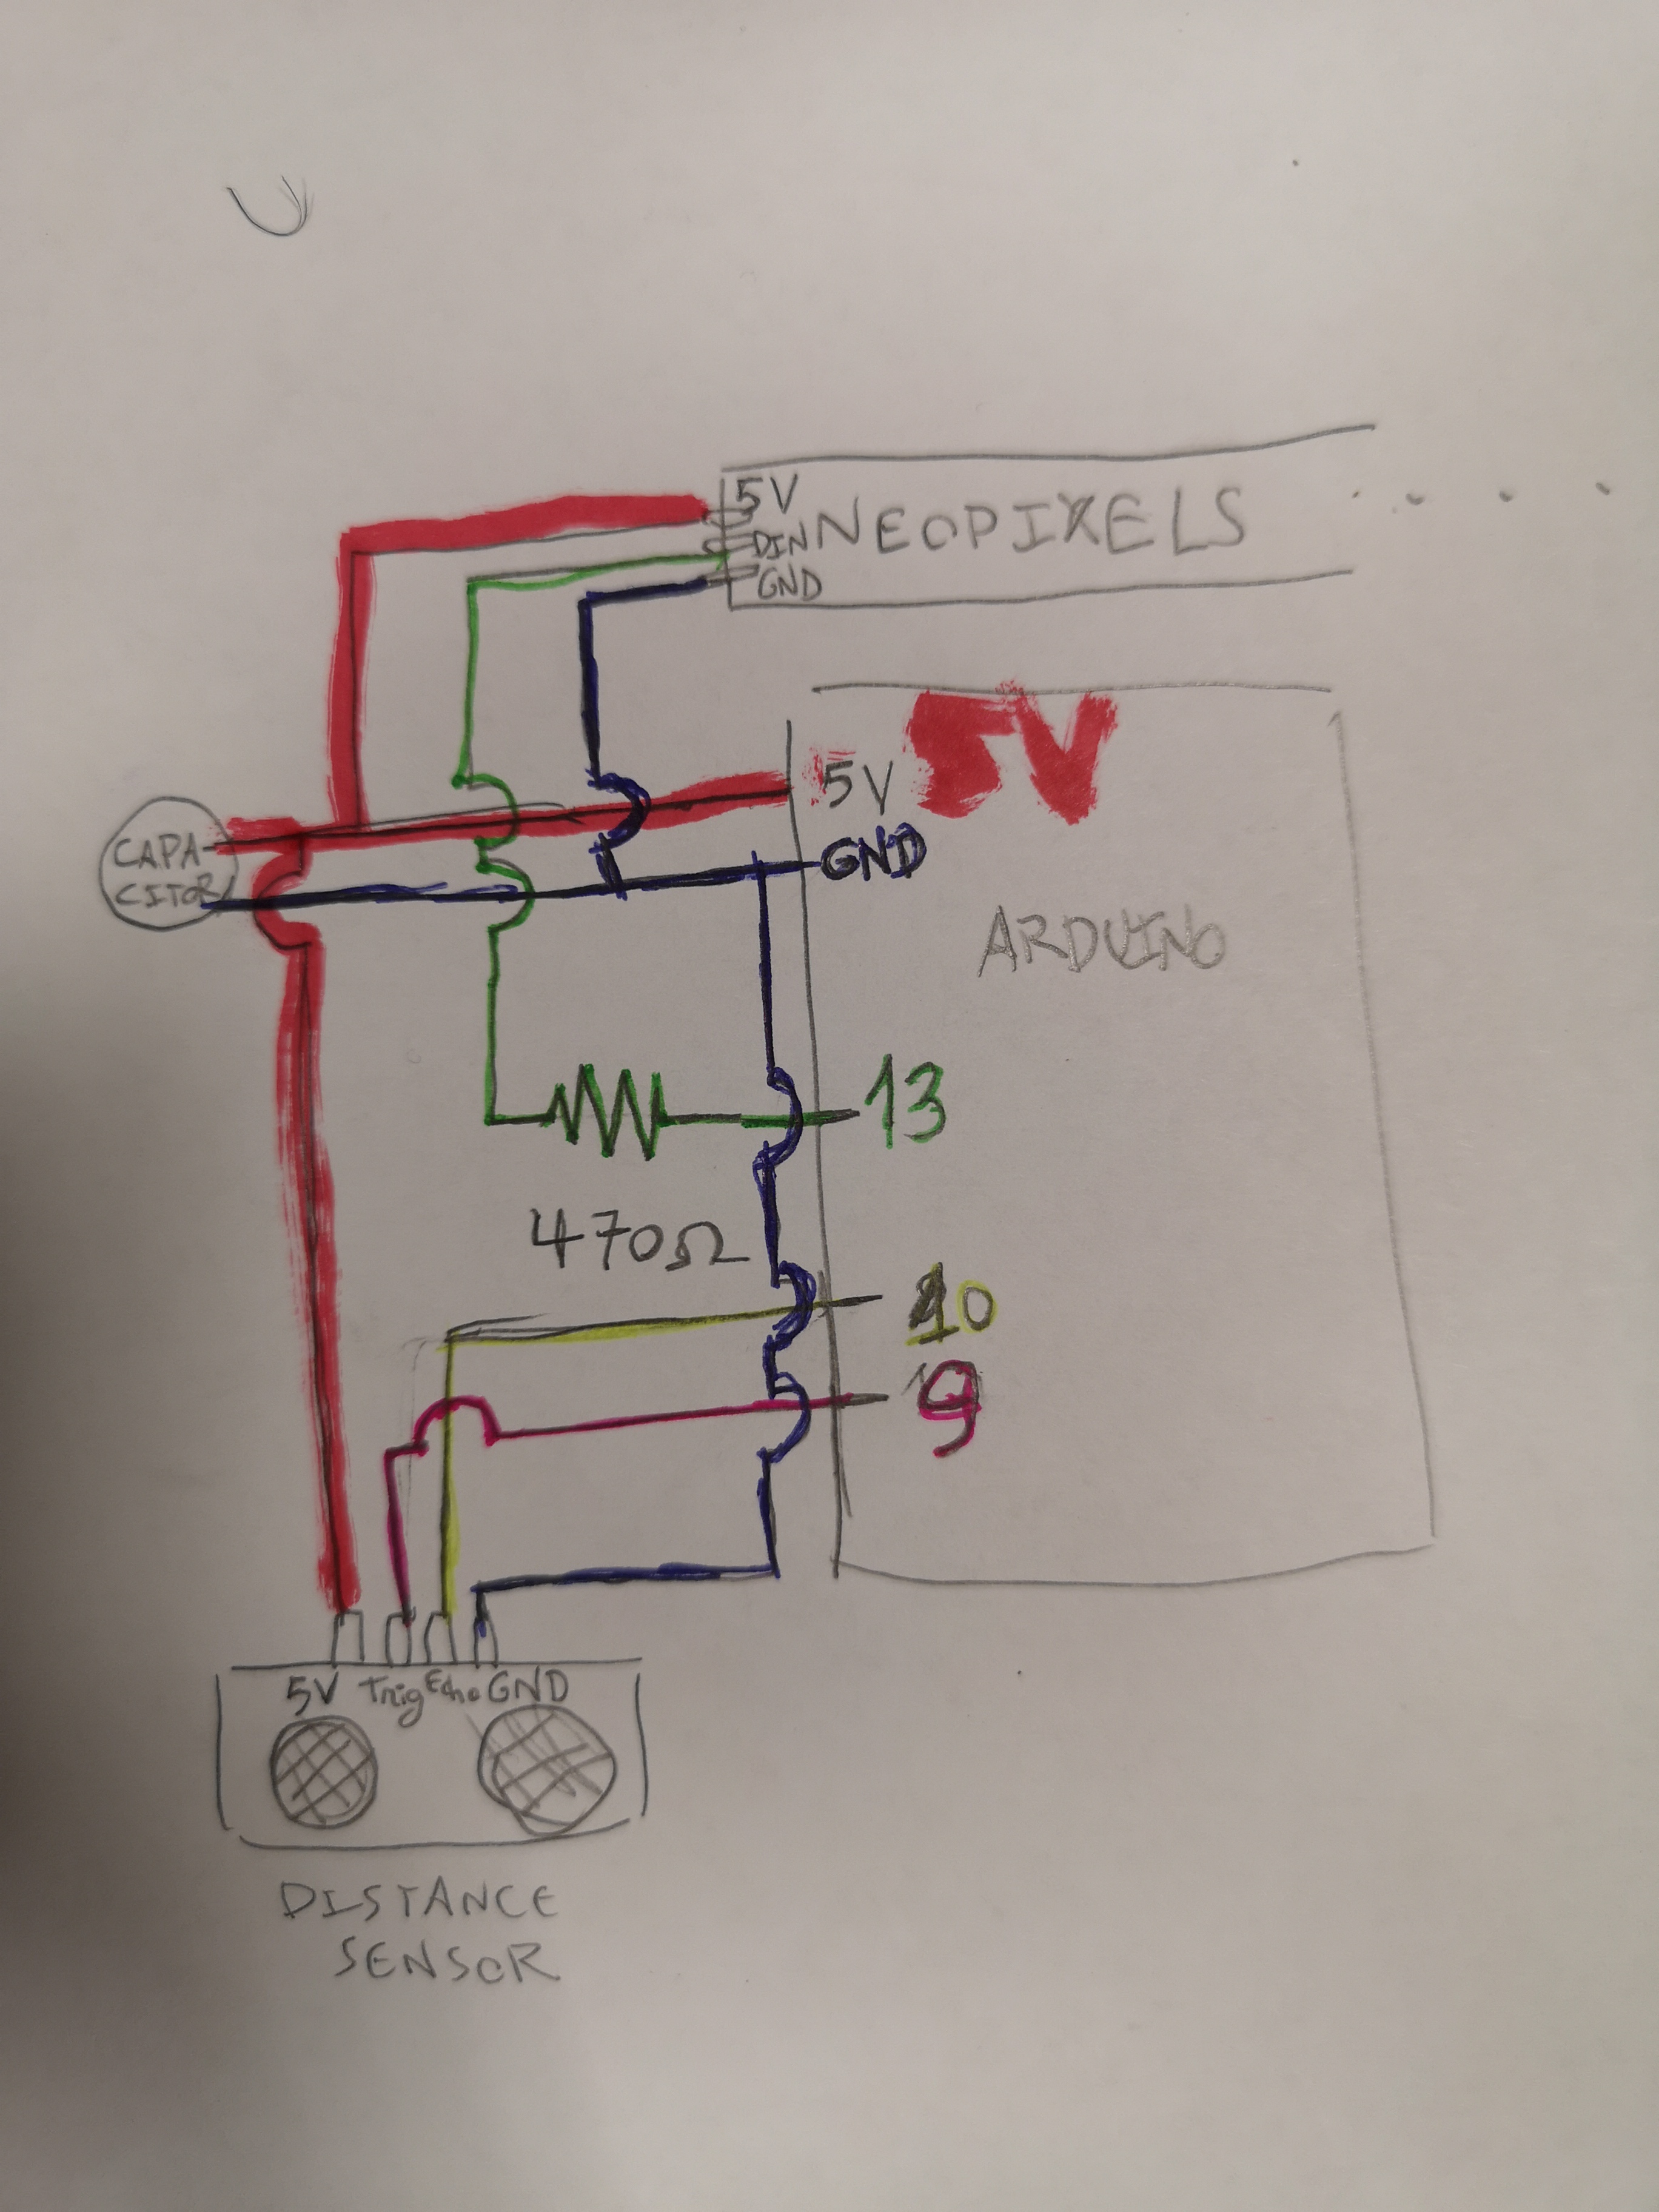 5V
DIN NEOPIXELS
GND
5V
5V
GND
CAPA-
CITOR
ARDUINO
13
470Ω
10
9
5V Trig Echo GND
DISTANCE
SENSOR